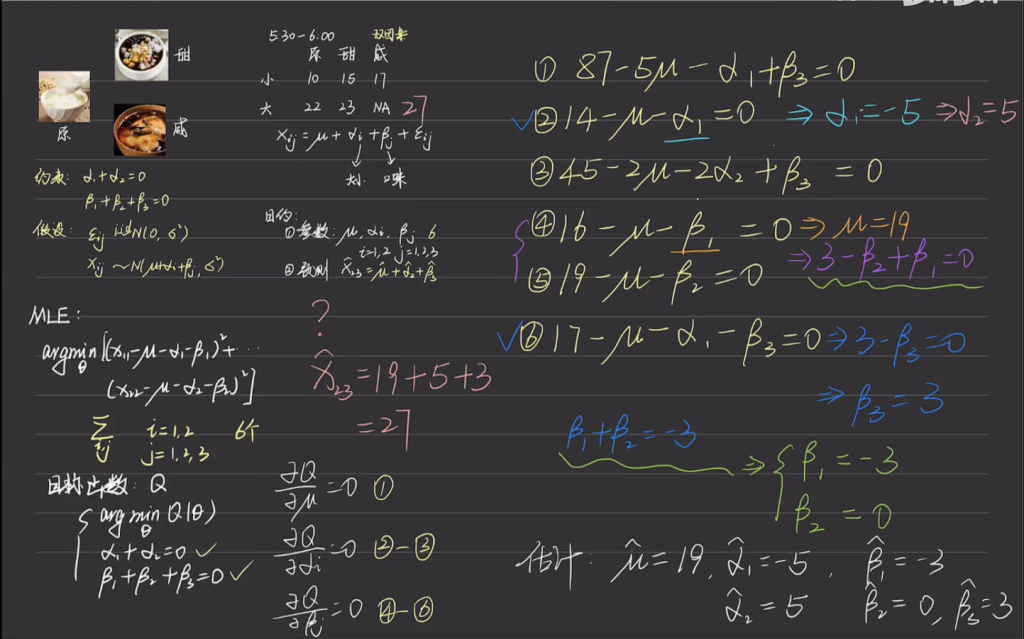 甜
原
咸
5:30-6:00 双因素
原 甜 咸
小 10 15 17
大 22 23 NA 27
x_ij = μ + α_i + β_j + ε_ij
口味
约束: α₁+α₂=0
β₁+β₂+β₃=0
假设: ε_ij iid N(0, σ²)
x_ij ~ N(μ+α_i+β_j, σ²)
目的:
①参数: μ, α_i, β_j 6
i=1,2 j=1,2,3
②预测 x̂₂₃ = μ̂+α̂₂+β̂₃
MLE:
argmin_θ [(x₁₁-μ-α₁-β₁)²+...
(x₂₂-μ-α₂-β₂)²]
Σ_ij i=1,2 6个
j=1,2,3
目标函数: Q
{ argmin_θ Q(θ)
α₁+α₂=0 ✓
β₁+β₂+β₃=0 ✓
?
x̂₂₃ = 19+5+3
=27
∂Q/∂μ =0 ①
∂Q/∂α_i =0 ②-③
∂Q/∂β_j =0 ④-⑥
① 87-5μ-α₁+β₃=0
✓② 14-μ-α₁=0 ⇒ α₁=-5 ⇒ α₂=5
③ 45-2μ-2α₂+β₃ =0
④ 16-μ-β₁ =0 ⇒ μ=19
⇒ 3-β₂+β₁=0
⑤ 19-μ-β₂=0
✓⑥ 17-μ-α₁-β₃=0 ⇒ 3-β₃=0
⇒ β₃=3
β₁+β₂=-3 ⇒ { β₁=-3
β₂=0
估计: μ̂=19, α̂₁=-5, β̂₁=-3
α̂₂=5 β̂₂=0, β̂₃=3